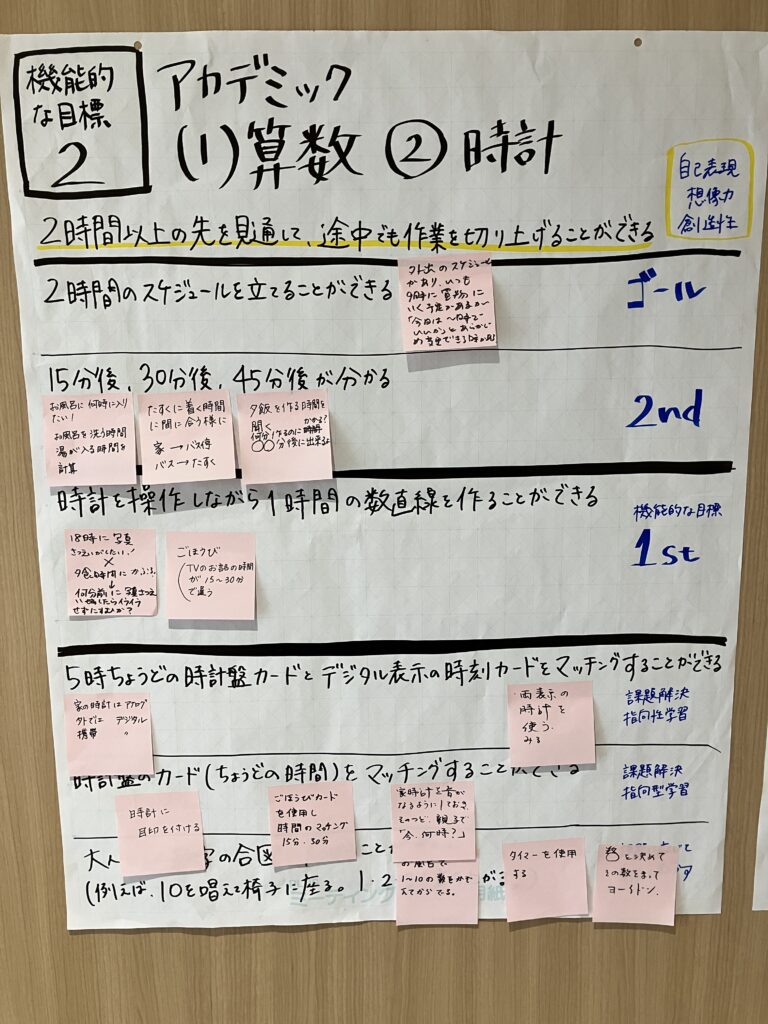 機能的
な目標
2
アカデミック
(1)算数 ② 時計
自己表現
想像力
創造性
2時間以上の先を見通して、途中でも作業を切り上げることができる
2時間のスケジュールを立てることができる
外出のスケジュール
があり、いつも
9時に買物に
いく予定があるが
「今日は〜時で
いいか」とあらかじ
ゴール
15分後、30分後、45分後が分かる
お風呂に何時に入り
たい!
お風呂を洗う時間
湯が入る時間を
計算
たすくに着く時間
に間に合う様に
家→バス停
バス→たすく
夕飯を作る時間を
聞く
何分 作るのに時間 かかる?
〇〇分後に出来るよ
2nd
時計を操作しながら1時間の数直線を作ることができる
18時に写真
さつえいがしたい!
×
夕食時間にかぶる。
↓
何分前に写真さつえ
い
したらイライラ
せずにすむか?
ごほうび
TVのお話の時間
が15〜30分
で違う
機能的な目標
1st
5時ちょうどの時計盤カードとデジタル表示の時刻カードをマッチングすることができる
家の時計はアナログ
外では デジタル
携帯 〃
・両表示の
時計を
使う
みる
課題解決
指向性学習
時計盤のカード(ちょうどの時間)をマッチングすること
できる
課題解決
指向型学習
時計に
目印を付ける
ごほうびカード
を使用し
時間のマッチング
15分・30分
家時計を音が
なるようにしておき
そのつど、親子で
「今、何時?」
大人
の合図
こと
(例えば、10を唱えて椅子に座る。1・2
が
の風呂で
1〜10の数をかぞ
えてからでる。
タイマーを使用
する
を決めて
その数をまって
ヨーイドン。
ミーティング
用紙